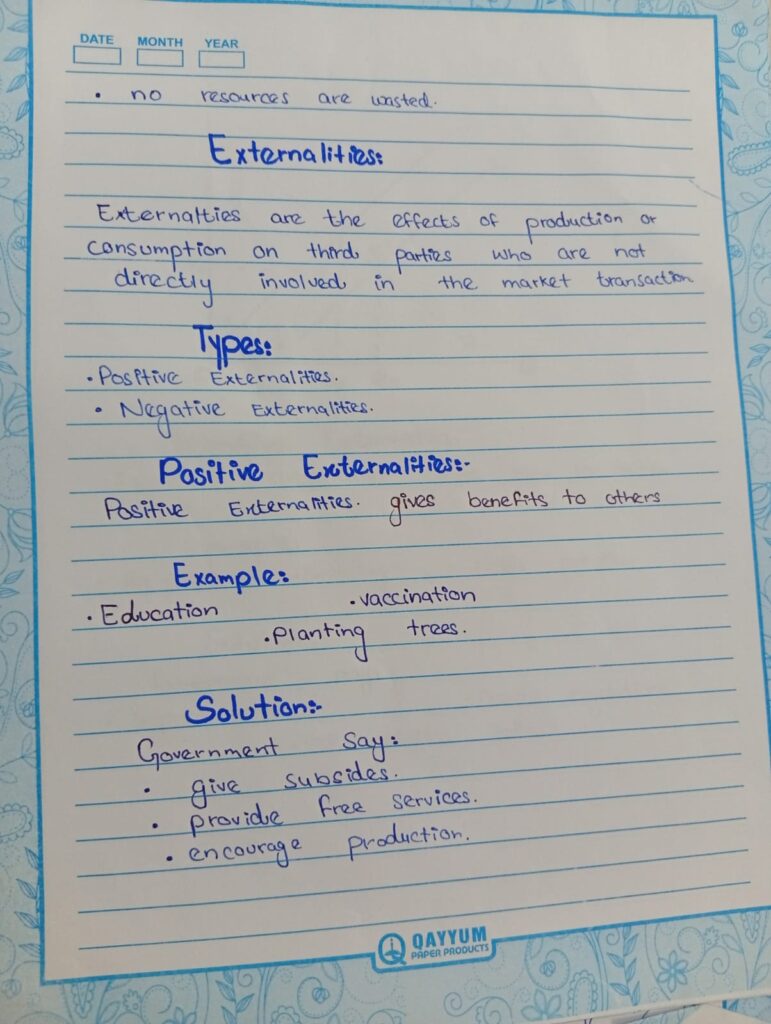 DATE MONTH YEAR
• no resources are wasted.
Externalities:
Externalties are the effects of production or
consumption on third parties who are not
directly involved in the market transaction
Types:
• Positive Externalities.
• Negative Externalities.
Positive Externalities:-
Positive Externalities. gives benefits to others
Example:
• Education • vaccination
• Planting trees.
Solution:-
Government say:
• give subsides.
• provide free services.
• encourage production.
QAYYUM
PAPER PRODUCTS